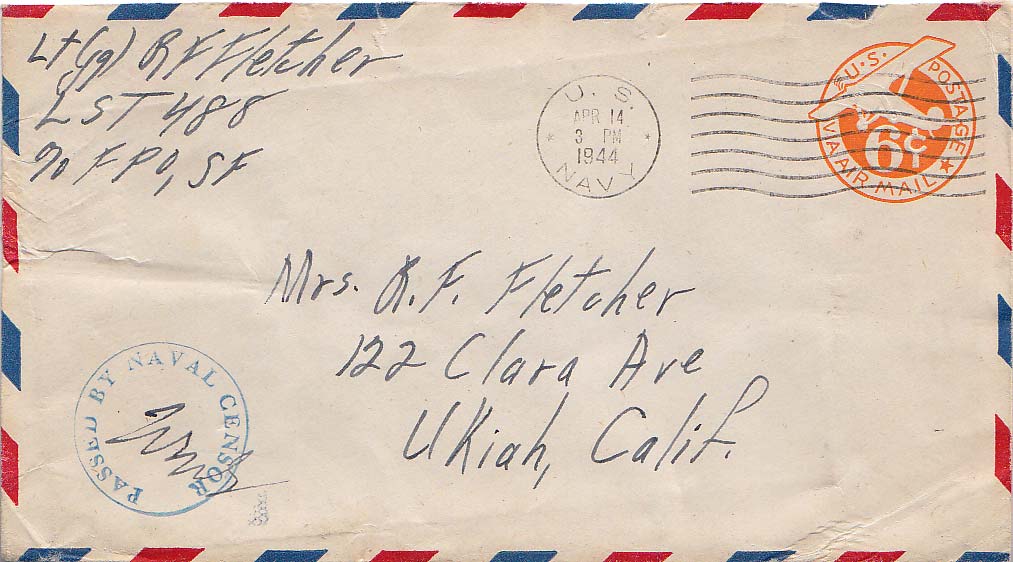 Lt(jg) R F Fletcher
LST 488
c/o FPO, SF
U. S.
APR 14
3 PM
1944
NAVY
U.S. POSTAGE
6¢
VIA AIR MAIL
Mrs. R. F. Fletcher
122 Clara Ave
Ukiah, Calif.
PASSED BY NAVAL CENSOR